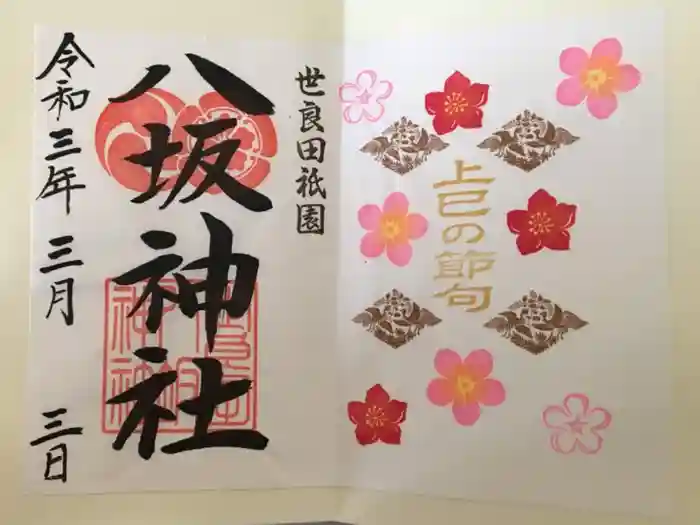 上巳の節句
世良田祇園
八坂神社
令和三年 三月 三日